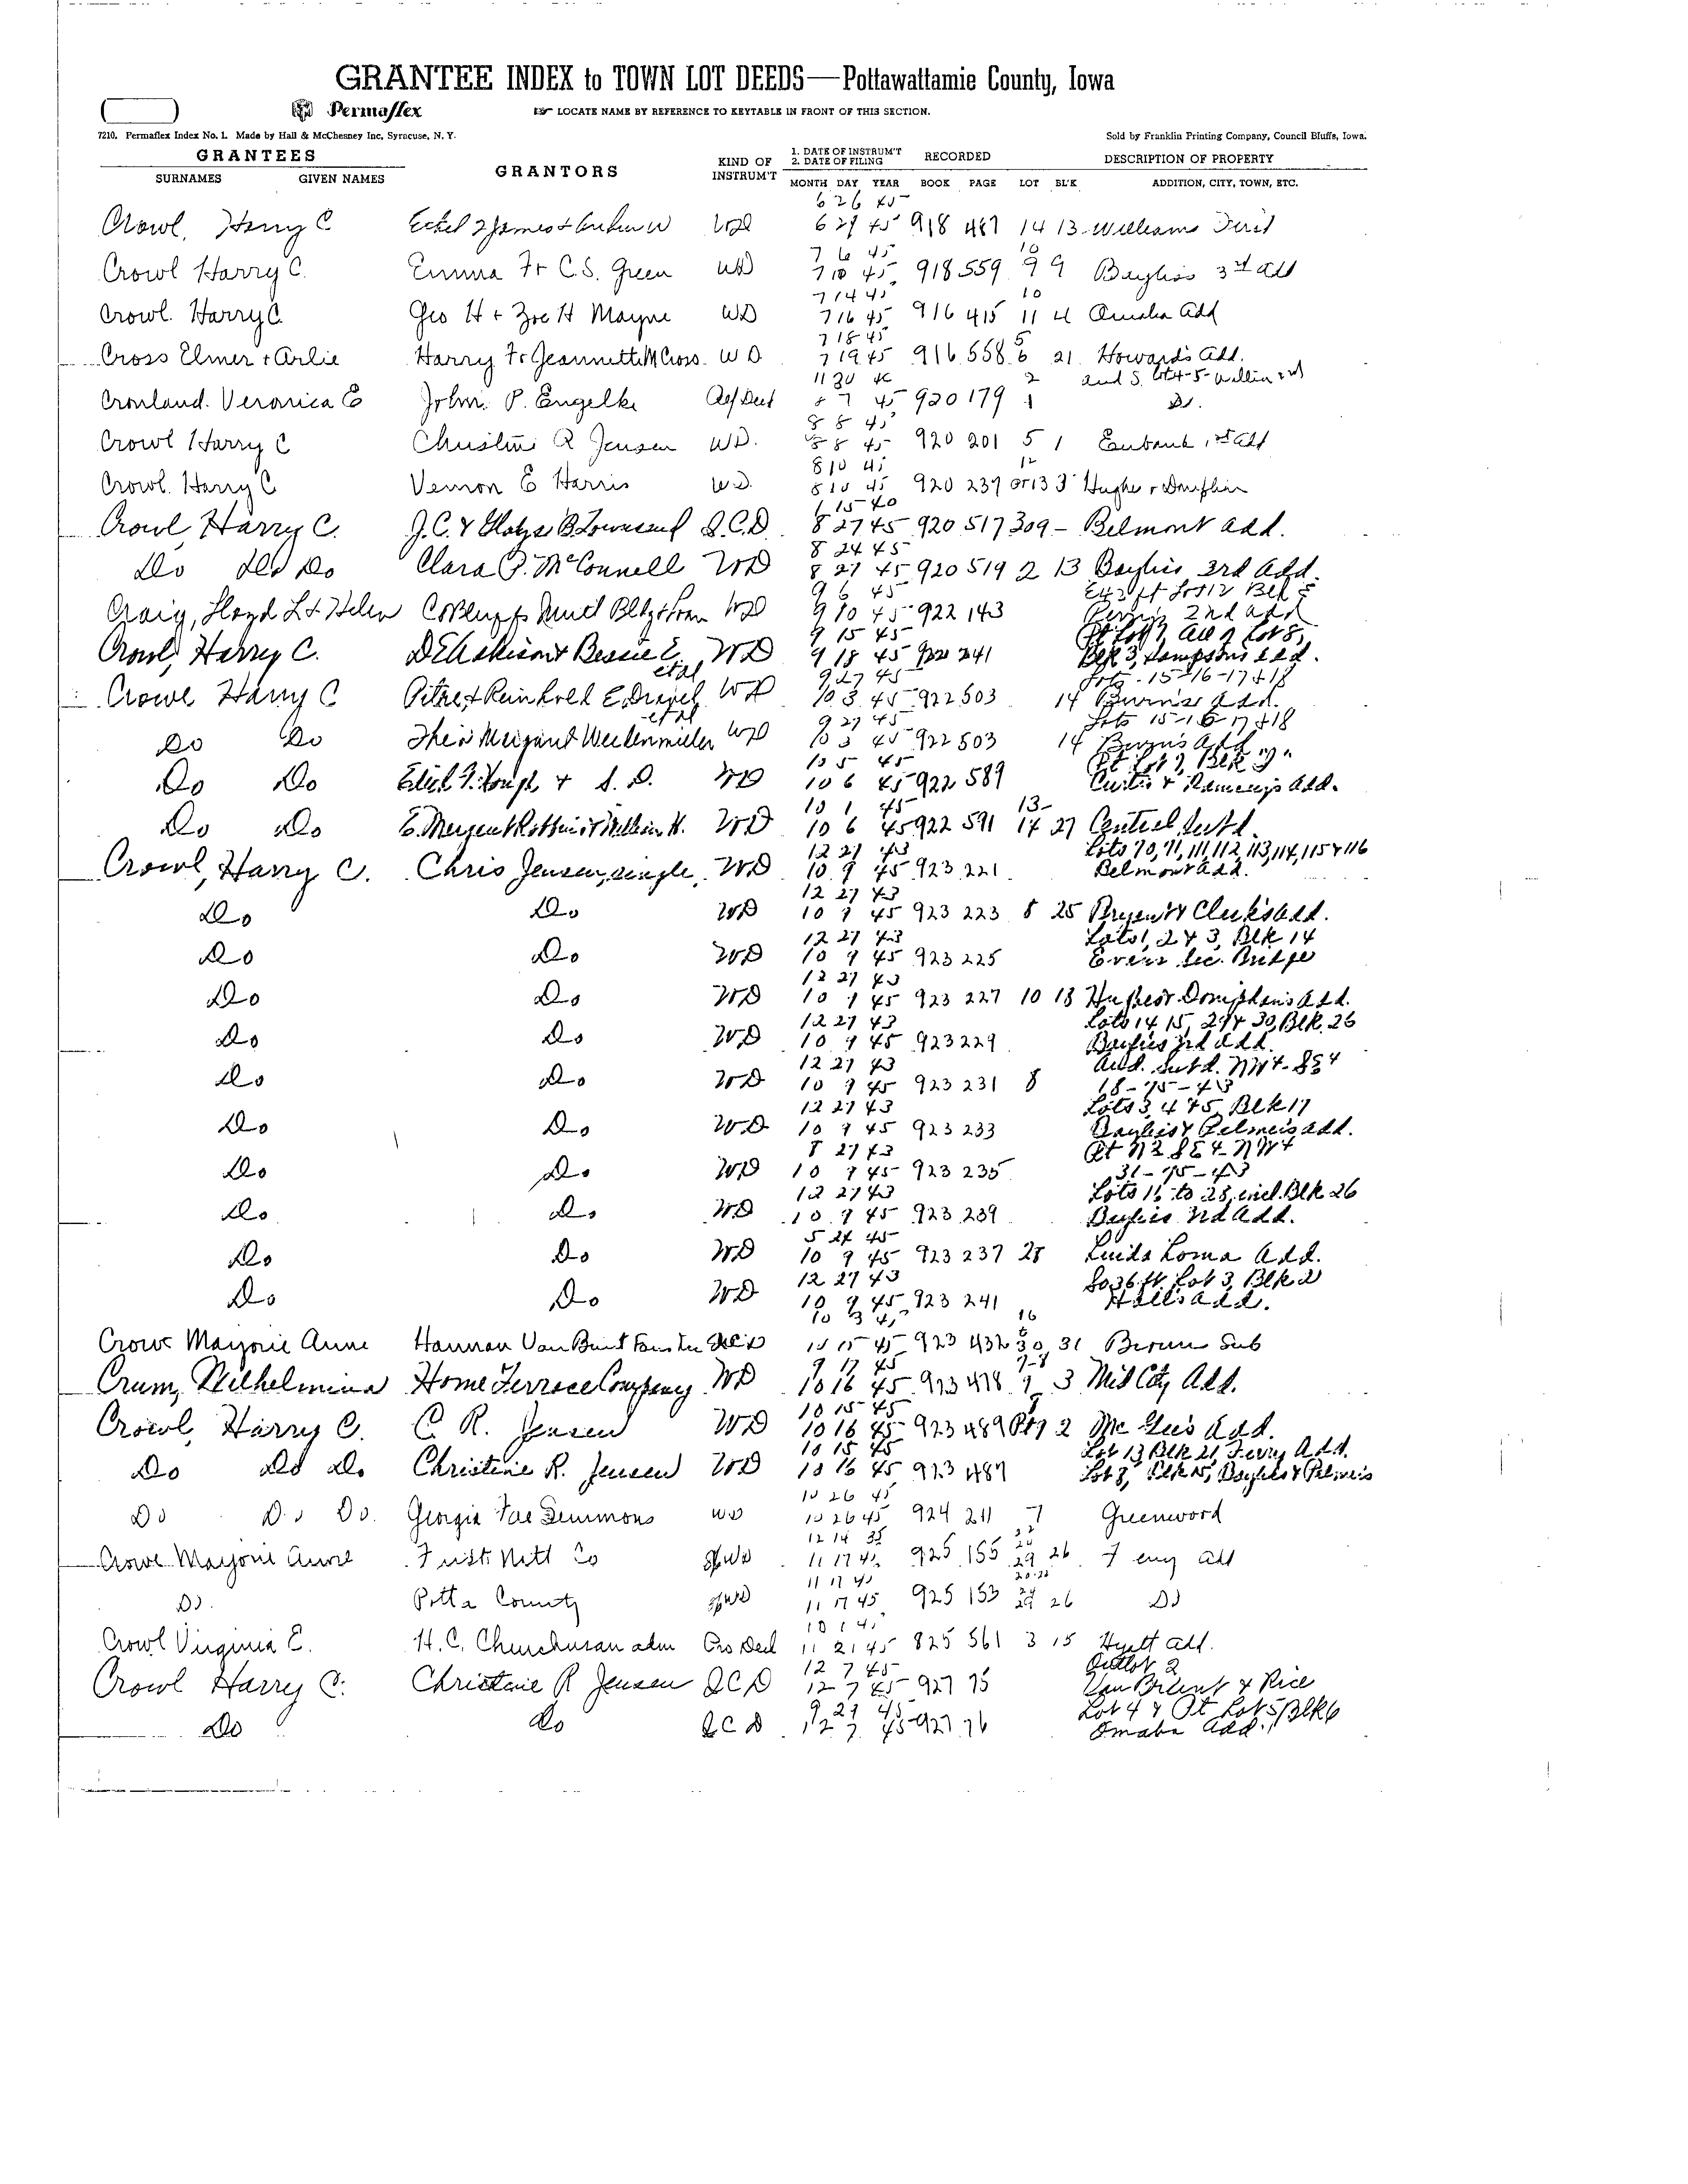 GRANTEE INDEX to TOWN LOT DEEDS—Pottawattamie County, Iowa
Permaflex
LOCATE NAME BY REFERENCE TO KEYTABLE IN FRONT OF THIS SECTION.
7210. Permaflex Index No. 1. Made by Hall & McChesney Inc, Syracuse, N. Y.
Sold by Franklin Printing Company, Council Bluffs, Iowa.
GRANTEES GRANTORS KIND OF INSTRUM'T 1. DATE OF INSTRUM'T 2. DATE OF FILING RECORDED DESCRIPTION OF PROPERTY
SURNAMES GIVEN NAMES MONTH DAY YEAR BOOK PAGE LOT BL'K ADDITION, CITY, TOWN, ETC.
6 26 45
Crowl, Harry C WD 6 29 45 918 467 14 13 Williams First
7 6 45 10
Crowl Harry C. Emma F + C.S. Green WD 7 10 45 918 559 9 9 Bayliss 3rd add
7 14 45 10
Crowl. Harry C. Geo H + Zoe H Mayne WD 7 16 45 916 415 11 4 Omaha add
7 18 45 5
Cross Elmer + Arlie Harry F + Jeannette M Cross WD 7 19 45 916 558 6 21 Howard's Add.
11 30 2
Veronica E John P. Engelke 8 7 45 920 179 1 Do.
8 8 45
Crowl Harry C Christine R Jensen WD. 8 8 45 920 201 5 1 Eubank 1st add
8 10 45 12
Crowl. Harry C Vernon E Harris WD. 8 10 45 920 237 or 13 3 Hughes + Doniphan
1 15 40
Crowl, Harry C. J.C. & Gladys B. Townsend Q.C.D. 8 27 45 920 517 309 - Belmont add.
8 24 45
Do Do Do Clara P. McConnell WD 8 27 45 920 519 2 13 Bayliss 3rd Add.
9 6 45 Lot 12 Blk
Craig, Lloyd L + Helen WD 9 10 45 922 143 2nd add
9 15 45 Pt Lot 7, all of Lot 8,
Crowl, Harry C. Bessie E. WD 9 18 45 922 241 Blk 3, Sampson's add.
et al 9 27 45 Lots 15-16-17+18
Crowl Harry C WD 10 3 45 922 503 14 Burns add.
et al 9 27 45 Lots 15-16-17+18
Do Do WD 10 3 45 922 503 14 Burns add
10 5 45 Pt Lot 7, Blk
Do Do WD 10 6 45 922 589 Curtis & Ramsey's Add.
10 1 45 13-
Do Do WD 10 6 45 922 591 14 27 Central Subd.
12 27 43 Lots 70, 71, 111, 112, 113, 114, 115 & 116
Crowl, Harry C. Chris Jensen, single, WD 10 9 45 923 221 Belmont add.
12 27 43
Do Do WD 10 9 45 923 223 8 25 Bryant & Clark's add.
12 27 43 Lots 1, 2 & 3, Blk 14
Do Do WD 10 9 45 923 225 Evers Sec. Bridge
12 27 43
Do Do WD 10 9 45 923 227 10 18 Hughes & Doniphan's add.
12 27 43 Lots 14, 15, 29 & 30, Blk. 26
Do Do WD 10 9 45 923 229 Bayliss 3rd add.
12 27 43 Aud. Subd. NW4-SE4
Do Do WD 10 9 45 923 231 8 18-75-43
12 27 43 Lots 3, 4 & 5, Blk 17
Do Do WD 10 9 45 923 233 Bayliss & Palmer's add.
8 27 43 Pt N2 SE4-NW4
Do Do WD 10 9 45 923 235 31-75-43
12 27 43 Lots 16 to 28, incl. Blk 26
Do Do WD 10 9 45 923 239 Bayliss 3rd Add.
5 24 45
Do Do WD 10 9 45 923 237 28 Linda Loma Add.
12 27 43 So 36 ft. Lot 3, Blk 2
Do Do WD 10 9 45 923 241 Hall's add.
10 3 45 16
Crowe Marjorie Anne Hannan Van Brunt 10 15 45 923 432 30 31 Brown Sub
9 17 45 7-8
Crum, Wilhelmina Home Terrace Company WD 10 16 45 923 478 9 3 Mid City Add.
10 15 45
Crowl, Harry C. C. R. Jensen WD 10 16 45 923 489 Pt 7 2 McGee's Add.
10 15 45 Lot 13 Blk 21, Ferry Add.
Do Do Do Christine R. Jensen WD 10 16 45 923 487 Lot 8, Blk 15, Bayliss & Palmer's
10 26 45
Do Do Do. Georgia Fae Simmons WD 10 26 45 924 211 7 Greenwood
12 14 35
Crowe Marjorie Anne First Natl Co 11 17 45 925 155 29 26 Ferry add
11 17 45
Do. Potta County 11 17 45 925 153 29 26 Do
10 1 45
Crowl Virginia E. adm 11 21 45 825 561 3 15 Hyatt add.
12 7 45 Outlot 2
Crowl Harry C. Christine R Jensen QCD 12 7 45 927 75 Van Brunt & Rice
9 27 45 Lot 4 & Pt Lot 5, Blk 6
Do Do QCD 12 7 45 927 76 Omaha add.